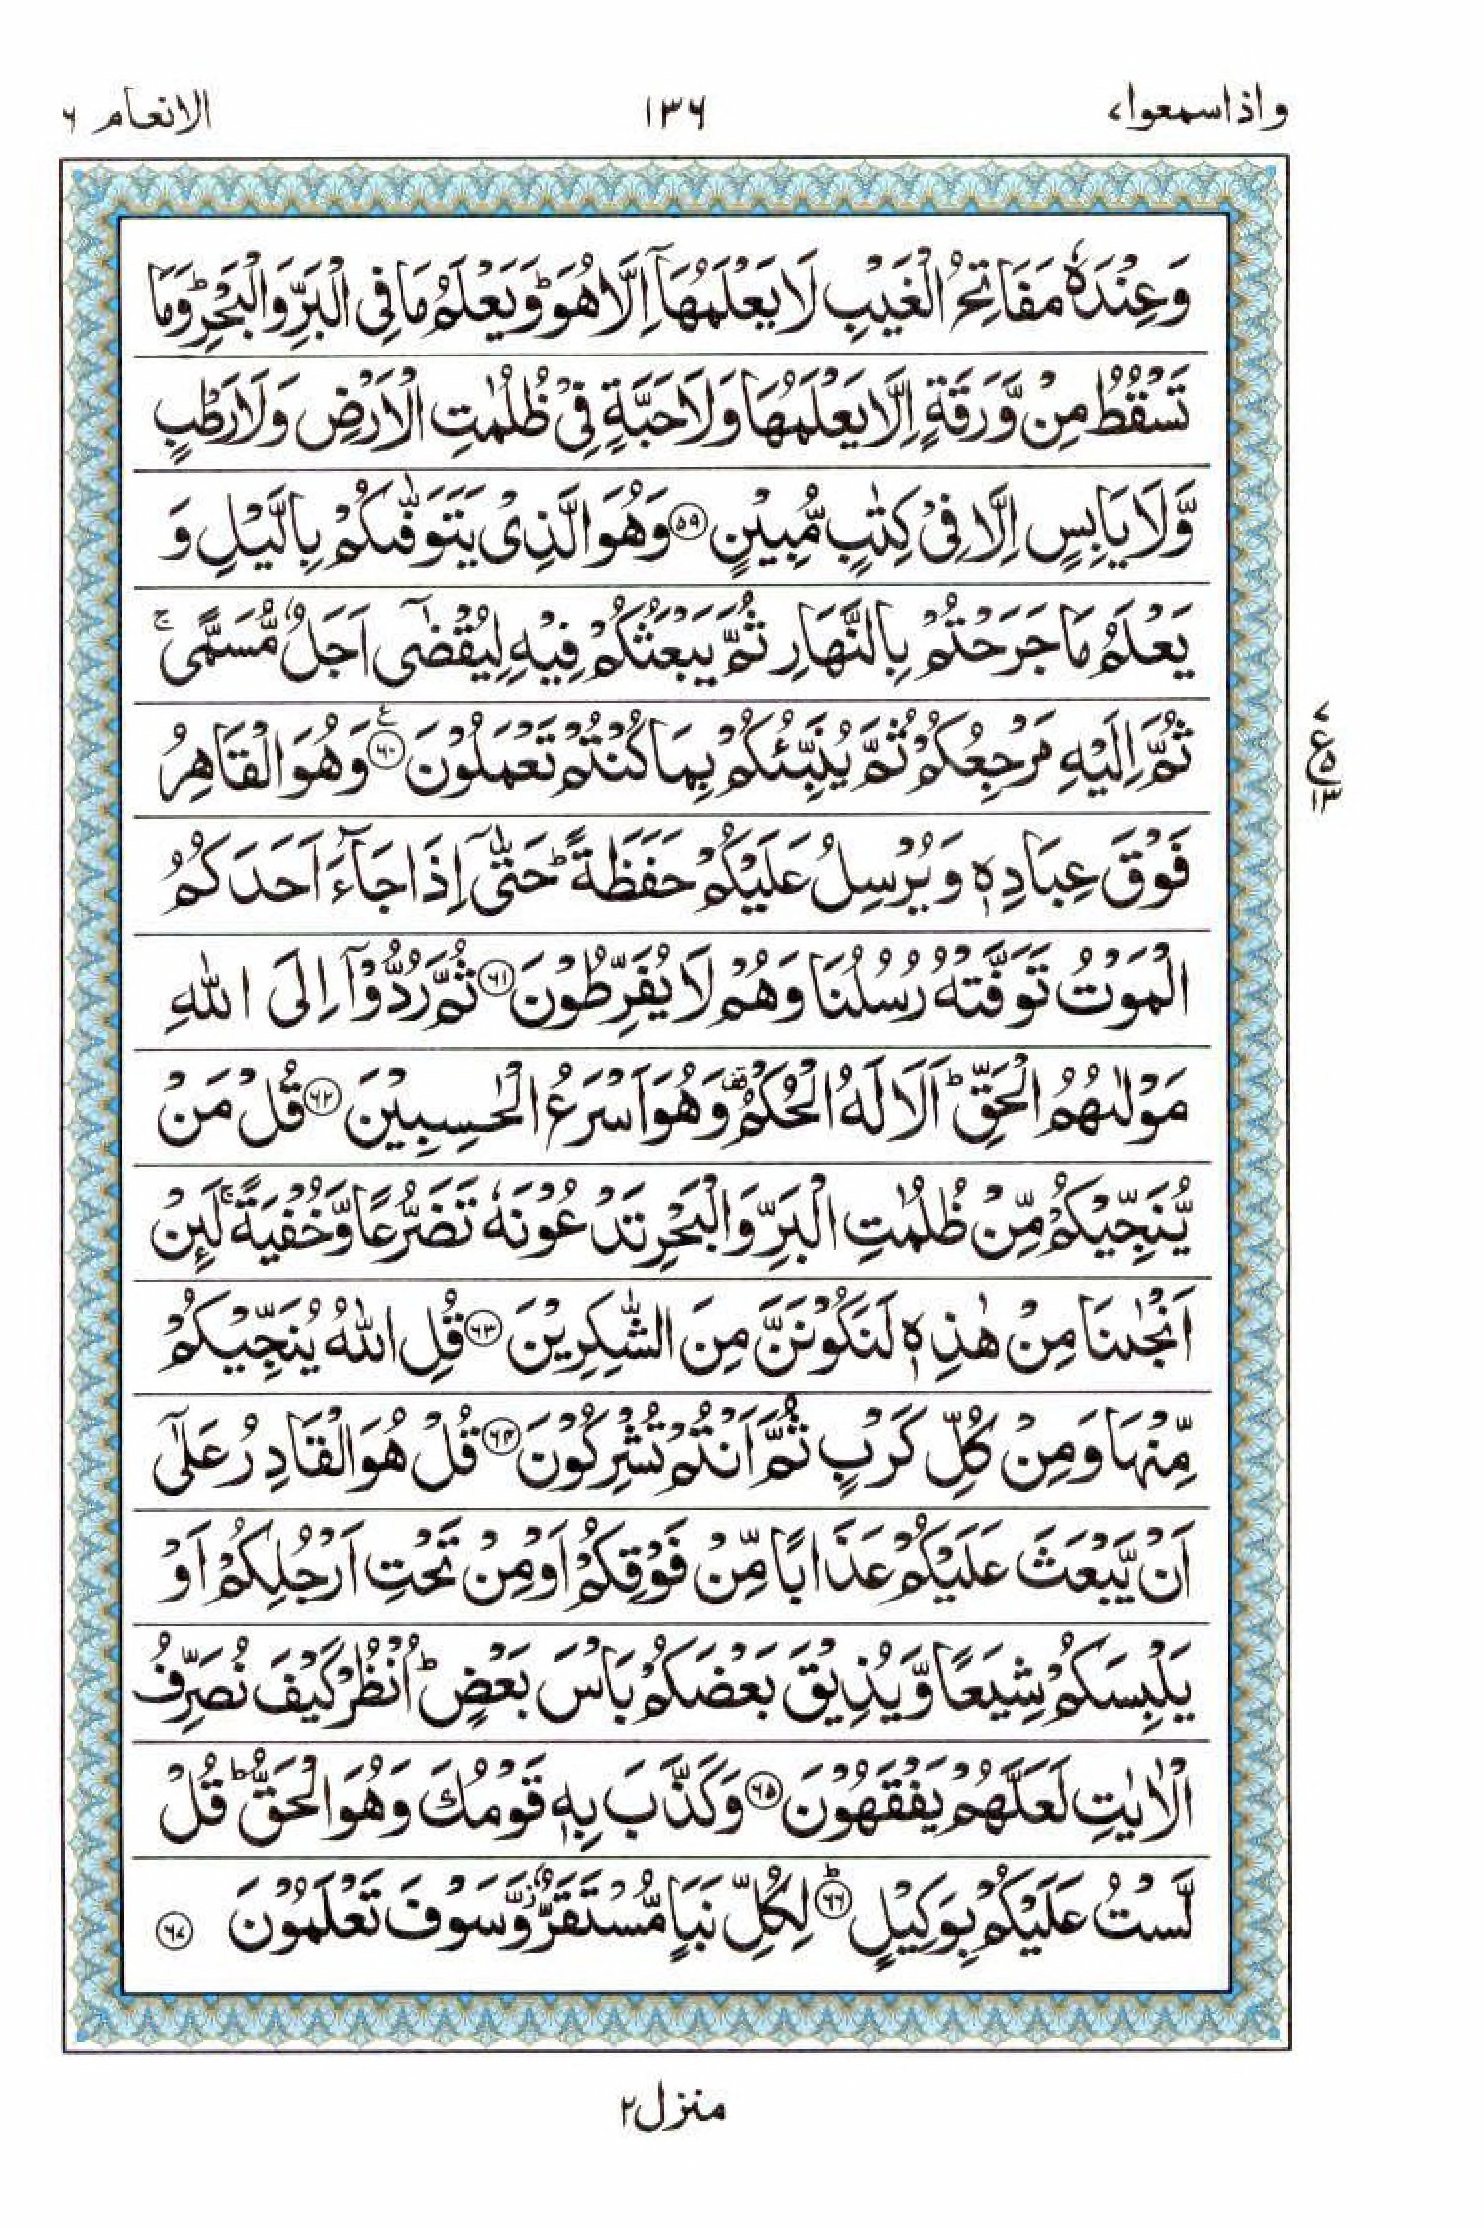 واذاسمعوا٧
١٣٦
الانعام ٦
وَعِنْدَهٗ مَفَاتِحُ الْغَيْبِ لَا يَعْلَمُهَاۤ اِلَّا هُوَ ؕ وَيَعْلَمُ مَا فِى الْبَرِّ وَالْبَحْرِ ؕ وَمَا
تَسْقُطُ مِنْ وَّرَقَةٍ اِلَّا يَعْلَمُهَا وَلَا حَبَّةٍ فِىْ ظُلُمٰتِ الْاَرْضِ وَلَا رَطْبٍ
وَّلَا يَابِسٍ اِلَّا فِىْ كِتٰبٍ مُّبِيْنٍ ٥٩ وَهُوَ الَّذِىْ يَتَوَفّٰىكُمْ بِالَّيْلِ وَ
يَعْلَمُ مَا جَرَحْتُمْ بِالنَّهَارِ ثُمَّ يَبْعَثُكُمْ فِيْهِ لِيُقْضٰٓى اَجَلٌ مُّسَمًّى ۚ
ثُمَّ اِلَيْهِ مَرْجِعُكُمْ ثُمَّ يُنَبِّئُكُمْ بِمَا كُنْتُمْ تَعْمَلُوْنَ ٦٠ ع وَهُوَ الْقَاهِرُ
٧ ع ٥ ١٣
فَوْقَ عِبَادِهٖ وَيُرْسِلُ عَلَيْكُمْ حَفَظَةً ؕ حَتّٰٓى اِذَا جَآءَ اَحَدَكُمُ
الْمَوْتُ تَوَفَّتْهُ رُسُلُنَا وَهُمْ لَا يُفَرِّطُوْنَ ٦١ ثُمَّ رُدُّوْۤا اِلَى اللّٰهِ
مَوْلٰىهُمُ الْحَقِّ ؕ اَلَا لَهُ الْحُكْمُ قف وَهُوَ اَسْرَعُ الْحٰسِبِيْنَ ٦٢ قُلْ مَنْ
يُّنَجِّيْكُمْ مِّنْ ظُلُمٰتِ الْبَرِّ وَالْبَحْرِ تَدْعُوْنَهٗ تَضَرُّعًا وَّخُفْيَةً ۚ لَئِنْ
اَنْجٰىنَا مِنْ هٰذِهٖ لَنَكُوْنَنَّ مِنَ الشّٰكِرِيْنَ ٦٣ قُلِ اللّٰهُ يُنَجِّيْكُمْ
مِّنْهَا وَمِنْ كُلِّ كَرْبٍ ثُمَّ اَنْتُمْ تُشْرِكُوْنَ ٦٤ قُلْ هُوَ الْقَادِرُ عَلٰٓى
اَنْ يَّبْعَثَ عَلَيْكُمْ عَذَابًا مِّنْ فَوْقِكُمْ اَوْ مِنْ تَحْتِ اَرْجُلِكُمْ اَوْ
يَلْبِسَكُمْ شِيَعًا وَّيُذِيْقَ بَعْضَكُمْ بَاْسَ بَعْضٍ ؕ اُنْظُرْ كَيْفَ نُصَرِّفُ
الْاٰيٰتِ لَعَلَّهُمْ يَفْقَهُوْنَ ٦٥ وَكَذَّبَ بِهٖ قَوْمُكَ وَهُوَ الْحَقُّ ؕ قُلْ
لَّسْتُ عَلَيْكُمْ بِوَكِيْلٍ ؕ ٦٦ لِكُلِّ نَبَاٍ مُّسْتَقَرٌّ ز وَّسَوْفَ تَعْلَمُوْنَ ٦٧
منزل ٢